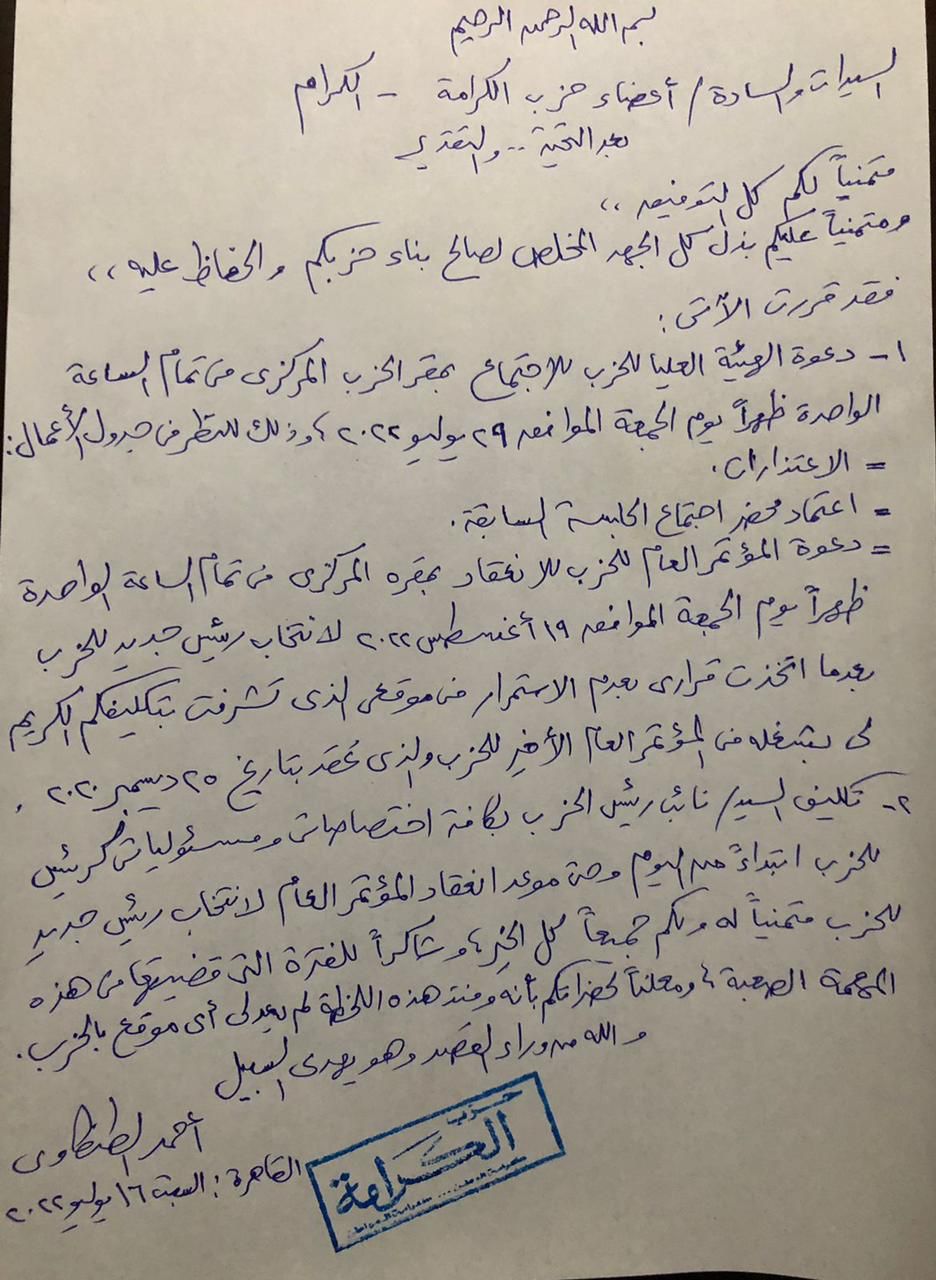 بسم الله الرحمن الرحيم
السيدات والسادة / أعضاء حزب الكرامة - الكرام
بعد التحية .. والتقدير
متمنياً لكم كل التوفيق ،،
ومتمنياً عليكم بذل كل الجهد المخلص لصالح بناء حزبكم والحفاظ عليه ،،
فقد قررت الآتى :
١- دعوة الهيئة العليا للحزب للاجتماع بمقر الحزب المركزى فى تمام الساعة
الواحدة ظهراً يوم الجمعة الموافق ٢٩ يوليو ٢٠٢٢ ، وذلك للنظر فى جدول الأعمال :
= الاعتذارات .
= اعتماد محضر اجتماع الجلسة السابقة .
= دعوة المؤتمر العام للحزب للانعقاد بمقره المركزى فى تمام الساعة الواحدة
ظهراً يوم الجمعة الموافق ١٩ أغسطس ٢٠٢٢ لانتخاب رئيس جديد للحزب
بعدما اتخذت قرارى بعدم الاستمرار فى موقعى الذى تشرفت بتكليفكم الكريم
لى بشغله فى المؤتمر العام الأخير للحزب والذى عُقد بتاريخ ٢٥ ديسمبر ٢٠٢٠ .
٢- تكليف السيد / نائب رئيس الحزب بكافة اختصاصاتى ومسئولياتى كرئيس
للحزب ابتداءً من اليوم وحتى موعد انعقاد المؤتمر العام لانتخاب رئيس جديد
للحزب متمنياً له ولكم جميعاً كل الخير ، وشاكراً للفترة التى قضيتها فى هذه
المهمة الصعبة ، ومعلناً لحضراتكم بأنه ومنذ هذه اللحظة لم يعد لى أى موقع بالحزب .
والله من وراء القصد وهو يهدى السبيل
أحمد الطنطاوى
القاهرة : السبت ١٦ يوليو ٢٠٢٢
حزب
الكرامة